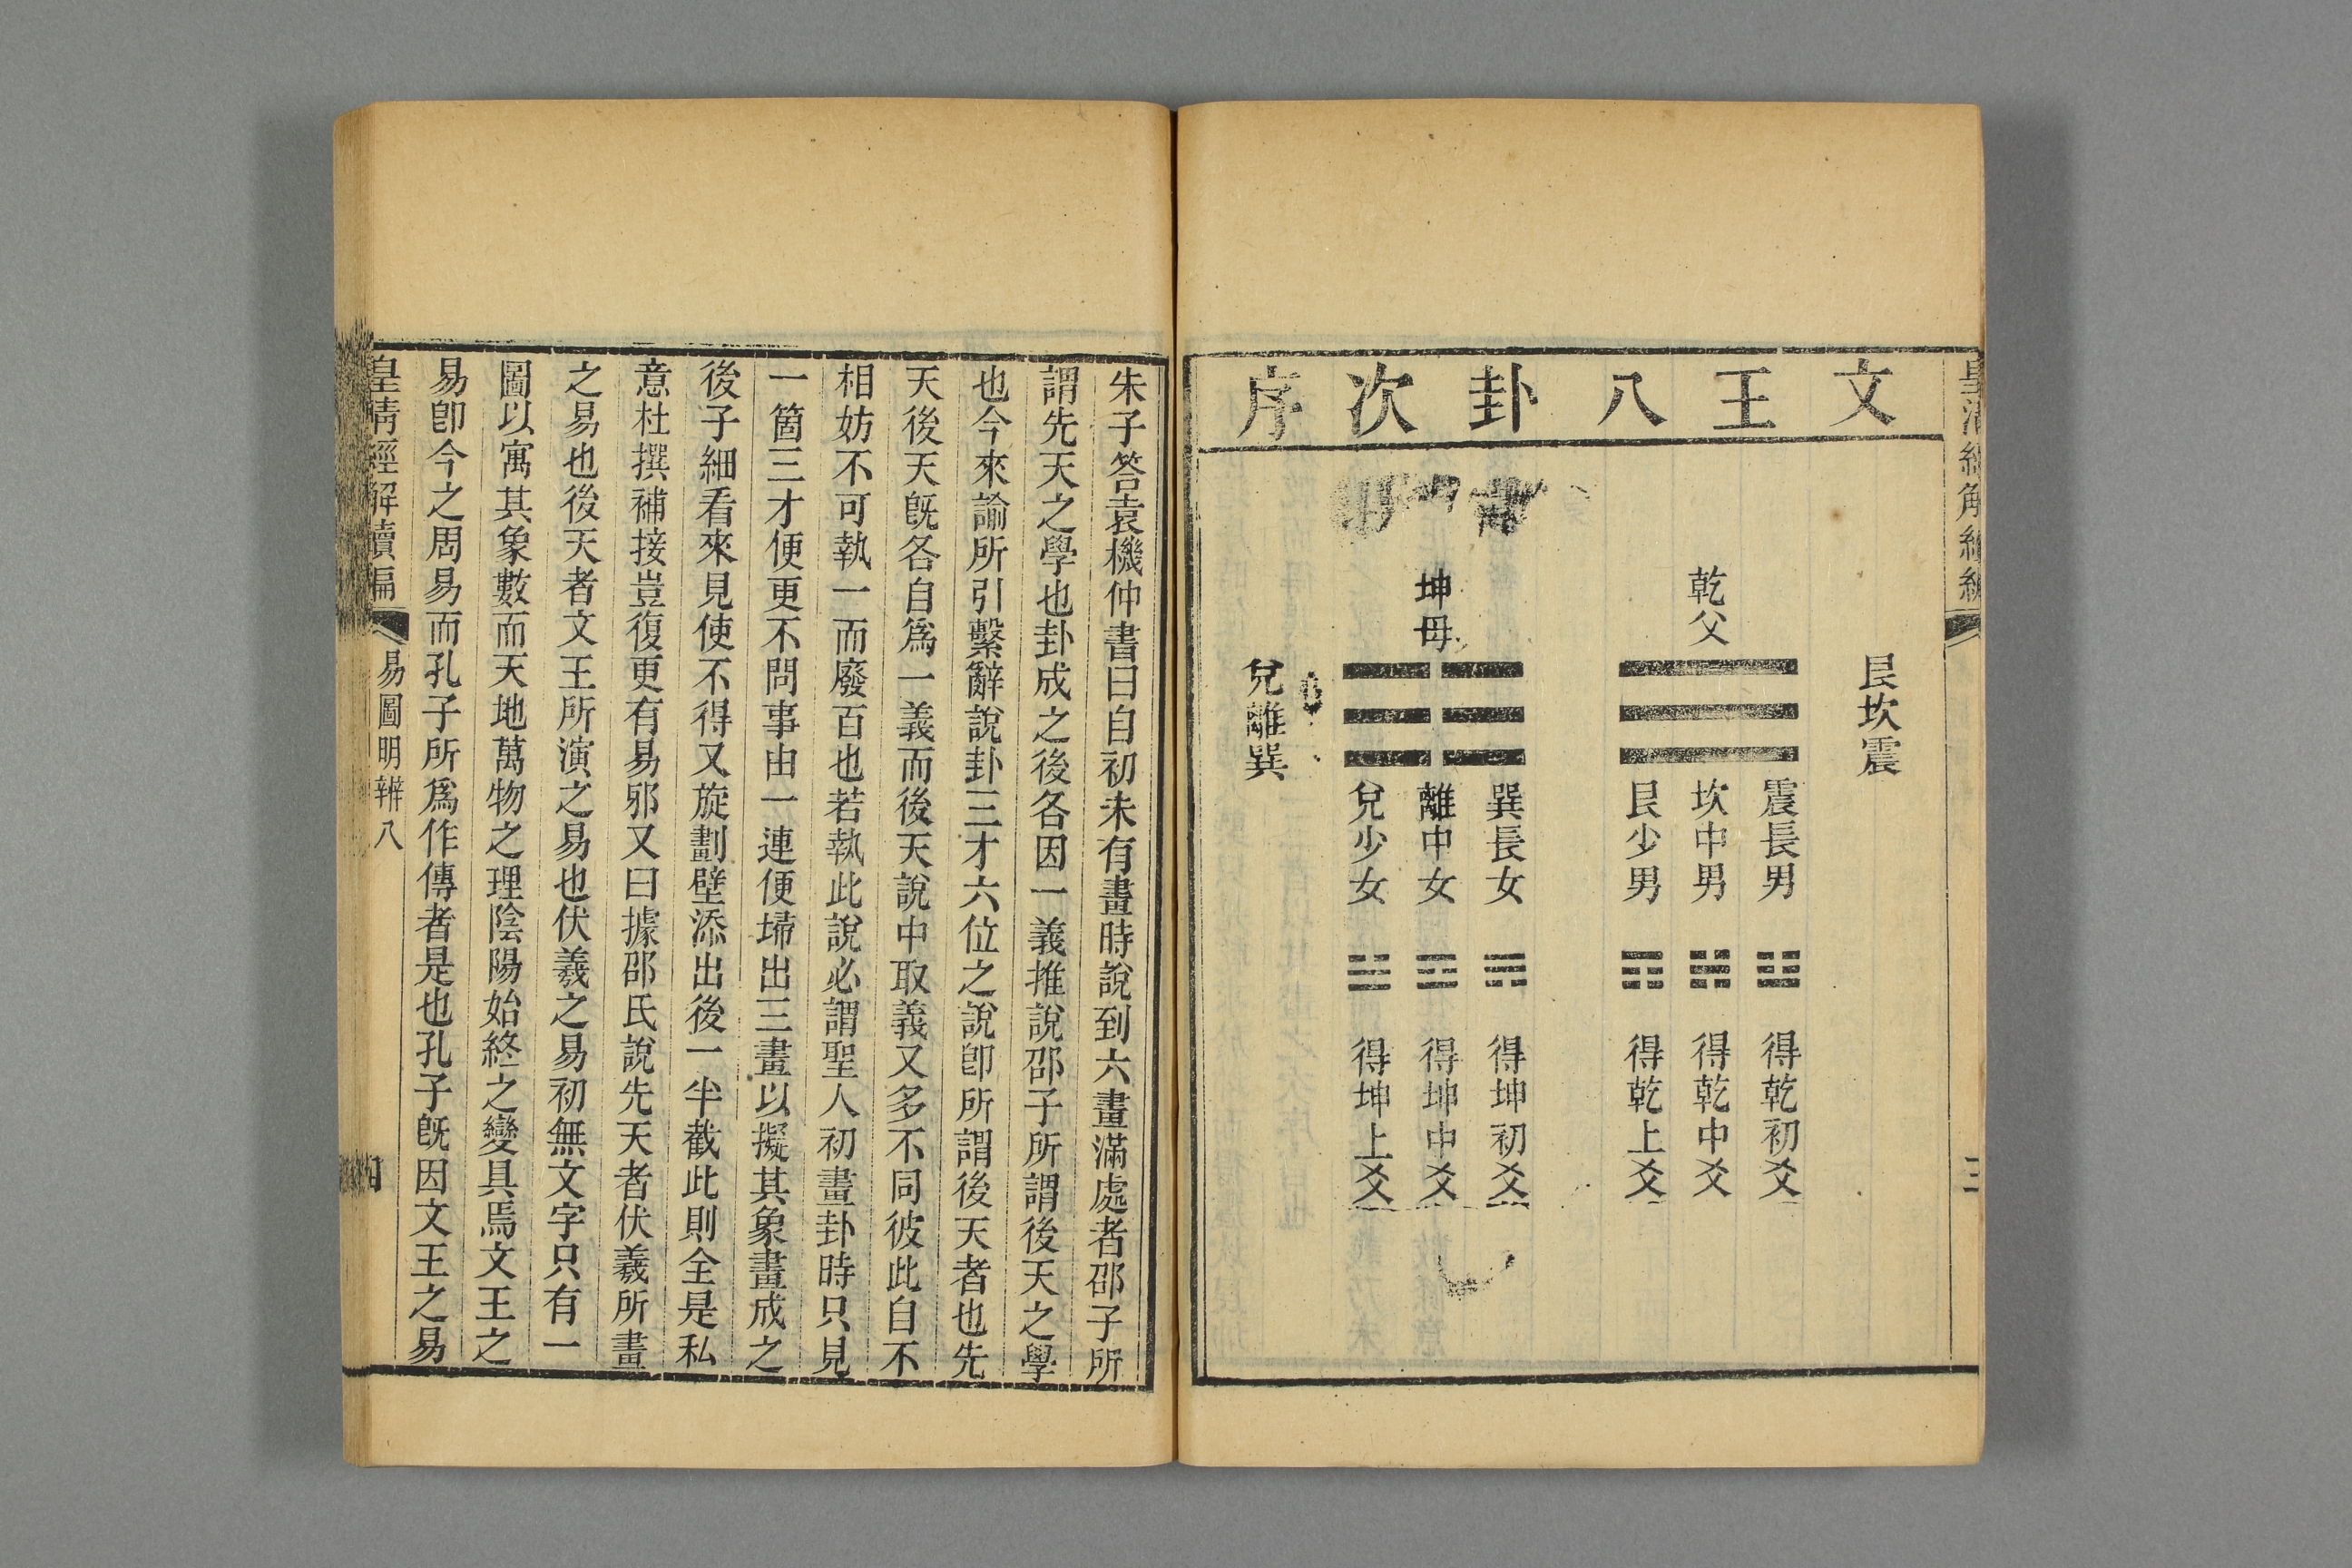 文王八卦次序
艮坎震
乾父
震長男
坎中男
艮少男
得乾初爻
得乾中爻
得乾上爻
坤母
巽長女
離中女
兌少女
得坤初爻
得坤中爻
得坤上爻
兌離巽
朱子答袁機仲書曰自初未有畫時說到六畫滿處者邵子所
謂先天之學也卦成之後各因一義推說邵子所謂後天之學
也今來諭所引繫辭說卦三才六位之說卽所謂後天者也先
天後天旣各自爲一義而後天說中取義又多不同彼此自不
相妨不可執一而廢百也若執此說必謂聖人初畫卦時只見
一箇三才便更不問事由一連便埽出三畫以擬其象畫成之
後子細看來見使不得又旋劃壁添出後一半截此則全是私
意杜撰補接豈復更有易邪又曰據邵氏說先天者伏羲所畫
之易也後天者文王所演之易也伏羲之易初無文字只有一
圖以寓其象數而天地萬物之理陰陽始終之變具焉文王之
易卽今之周易而孔子所爲作傳者是也孔子旣因文王之易
皇清經解續編 易圖明辨八 四